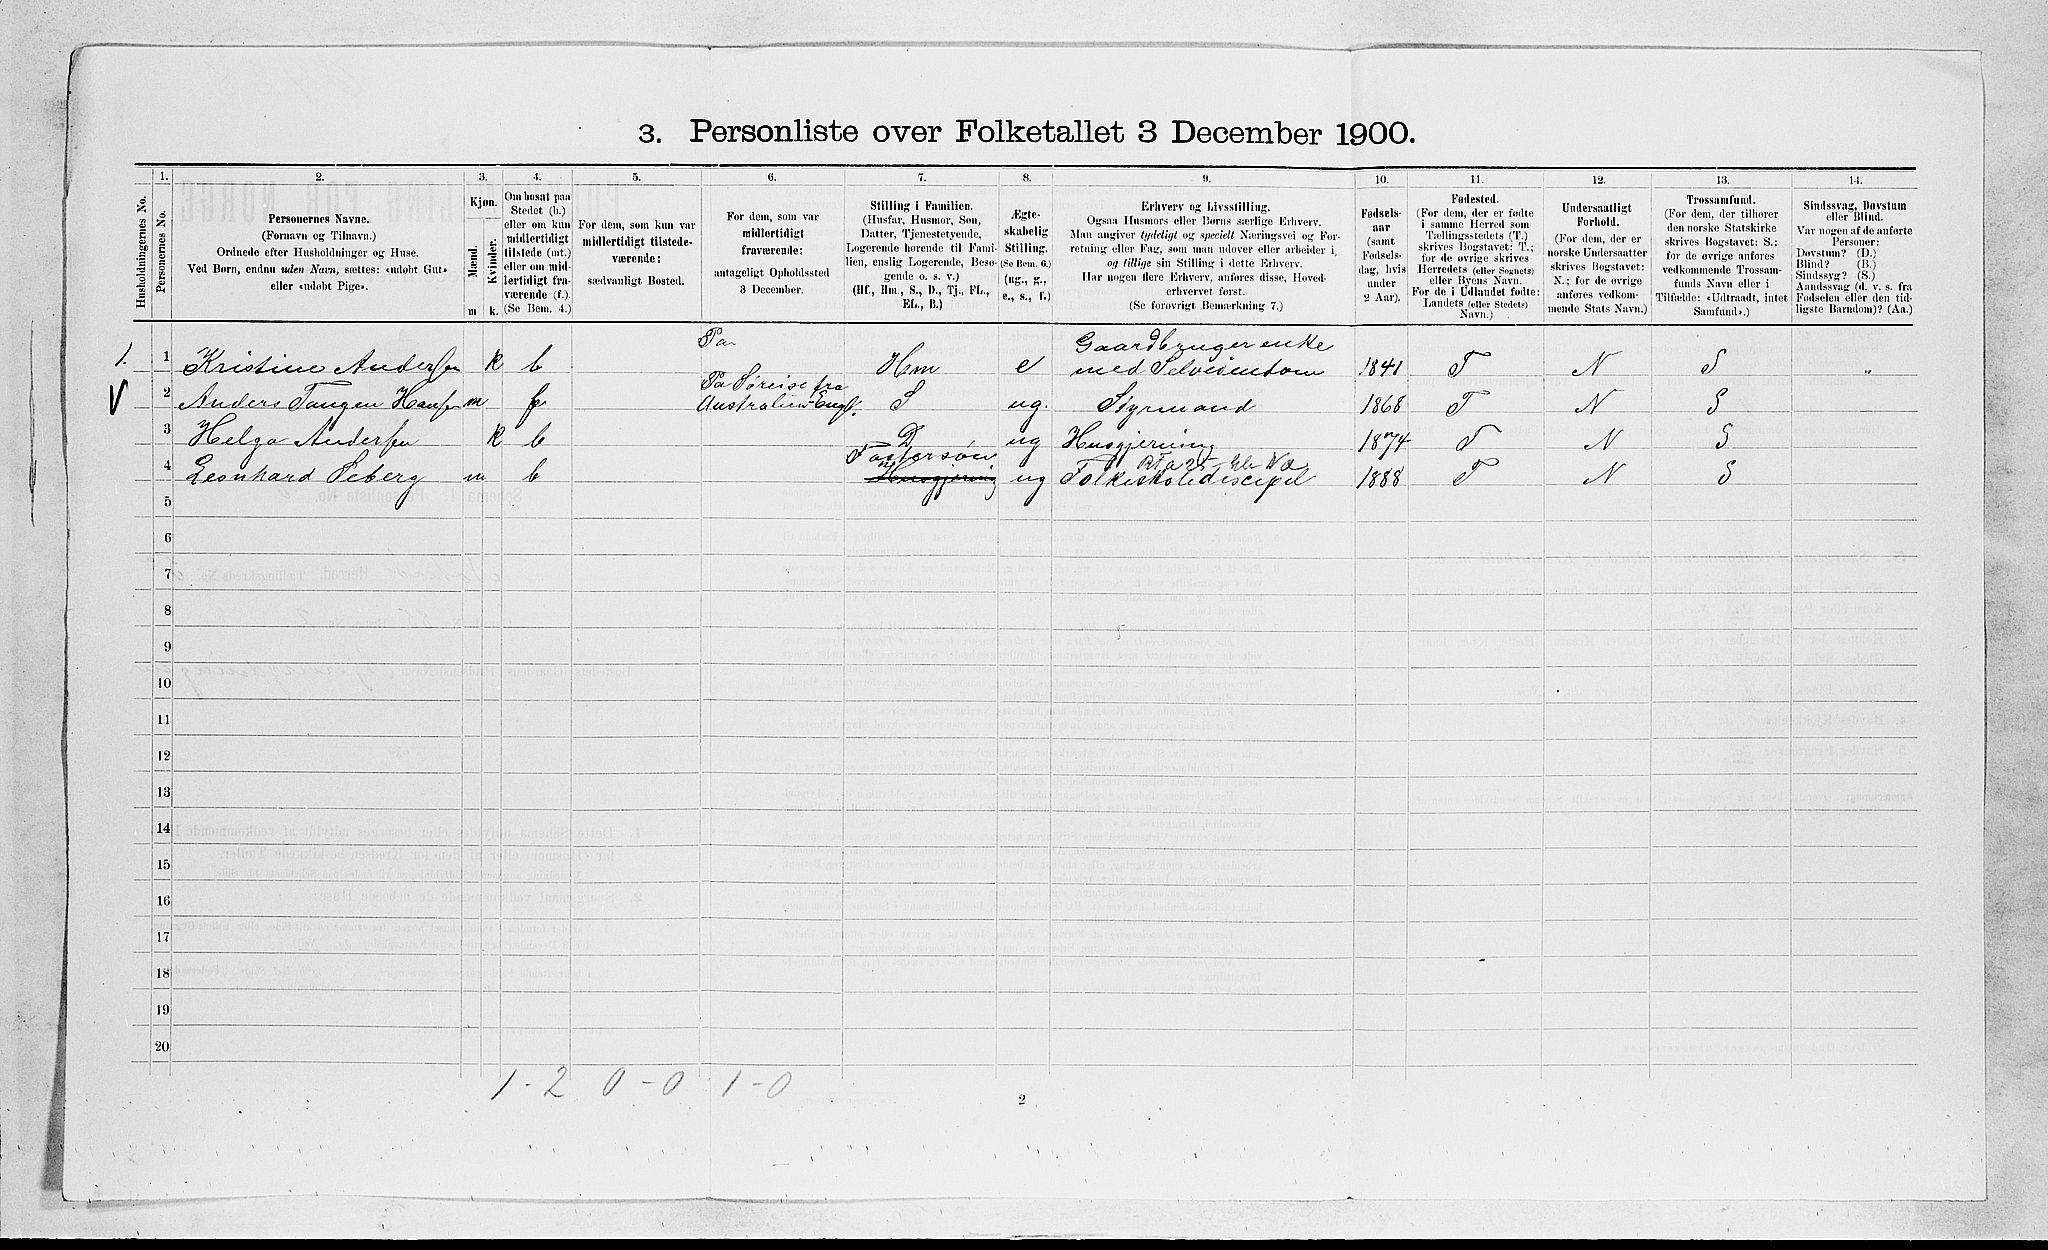 3. Personliste over Folketallet 3 December 1900.
Husholdningernes No.
1.
Personernes No.
2.
Personernes Navne.
(Fornavn og Tilnavn.)
Ordnede efter Husholdninger og Huse.
Ved Børn, endnu uden Navn, sættes: «udøbt Gut»
eller «udøbt Pige».
3.
Kjøn.
Mænd.
Kvinder.
m k.
4.
Om bosat paa
Stedet (b.)
eller om kun
midlertidigt
tilstede (mt.)
eller om mid-
lertidigt fra-
værende (f.).
(Se Bem. 4.)
5.
For dem, som kun var
midlertidigt tilstede-
værende:
sædvanligt Bosted.
6.
For dem, som var
midlertidigt
fraværende:
antageligt Opholdssted
3 December.
7.
Stilling i Familien.
(Husfar, Husmor, Søn,
Datter, Tjenestetyende,
Logerende hørende til Fami-
lien, enslig Logerende, Besø-
gende o. s. v.)
(Hf., Hm., S., D., Tj., FL.,
EL., B.)
8.
Ægte-
skabelig
Stilling.
(Se Bem. 6.)
(ug., g.,
e., s., f.)
9.
Erhverv og Livsstilling.
Ogsaa Husmors eller Børns særlige Erhverv.
Man angiver tydeligt og specielt Næringsvei og For-
retning eller Fag, som man udøver eller arbeider i,
og tillige sin Stilling i dette Erhverv.
Har nogen flere Erhverv, anføres disse, Hoved-
erhvervet først.
(Se forøvrigt Bemærkning 7.)
10.
Fødsels-
aar
(samt
Fødsels-
dag, hvis
under
2 Aar).
11.
Fødested.
(For dem, der er fødte
i samme Herred som
Tællingsstedets (T.)
skrives Bogstavet: T.;
for de øvrige skrives
Herredets (eller Sognets)
eller Byens Navn.
For de i Udlandet fødte:
Landets (eller Stedets)
Navn.)
12.
Undersaatligt
Forhold.
(For dem, der er
norske Undersaatter
skrives Bogstavet:
N.; for de øvrige
anføres vedkom-
mende Stats Navn.)
13.
Trossamfund.
(For dem, der tilhører
den norske Statskirke
skrives Bogstavet: S.;
for de øvrige anføres
vedkommende Trossam-
funds Navn eller i
Tilfælde: «Udtraadt, intet
Samfund».)
14.
Sindssvag, Døvstum
eller Blind.
Var nogen af de anførte
Personer:
Døvstum? (D.)
Blind? (B.)
Sindssyg? (S.)
Aandssvag (d. v. s. fra
Fødselen eller den tid-
ligste Barndom)? (Aa.)
1. 1 Kristine Andersen k b Paa Hm e Gaardbrugerenke
med Selveiendom 1841 T N S "
V 2 Anders Tangen Hansen m f Pa Søreise fra
Australien-Engl. S ug. Styrmand 1868 T N S
3 Helga Andersen k b D ug Husgjerning 1874 T N S
4 Leonhard Seberg m b Fostersøn
Husgjerning ug Folkeskolediscipel 1888 T N S
5
6
7
8
9
10
11
12
13
14
15
16
17
18
19
20
1 - 2 0 - 0 1 - 0
2